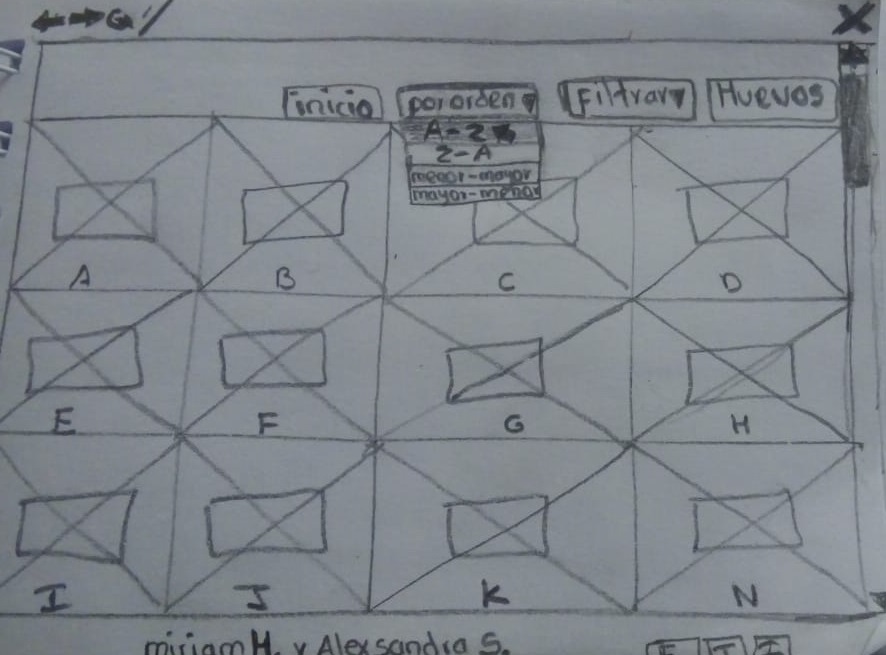 inicio por orden Filtrar Huevos
A-Z
Z-A
menor-mayor
mayor-menor
A B C D
E F G H
I J K N
miriam H. y Alexsandra S.